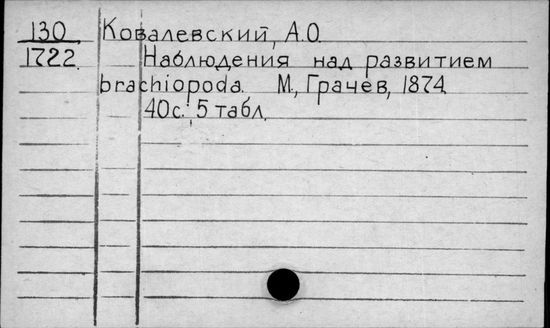 130 Ковалевский, А.О.
1722. Наблюдения над развитием
brachiopoda. М., Грачев, 1874.
40с. 5 табл.